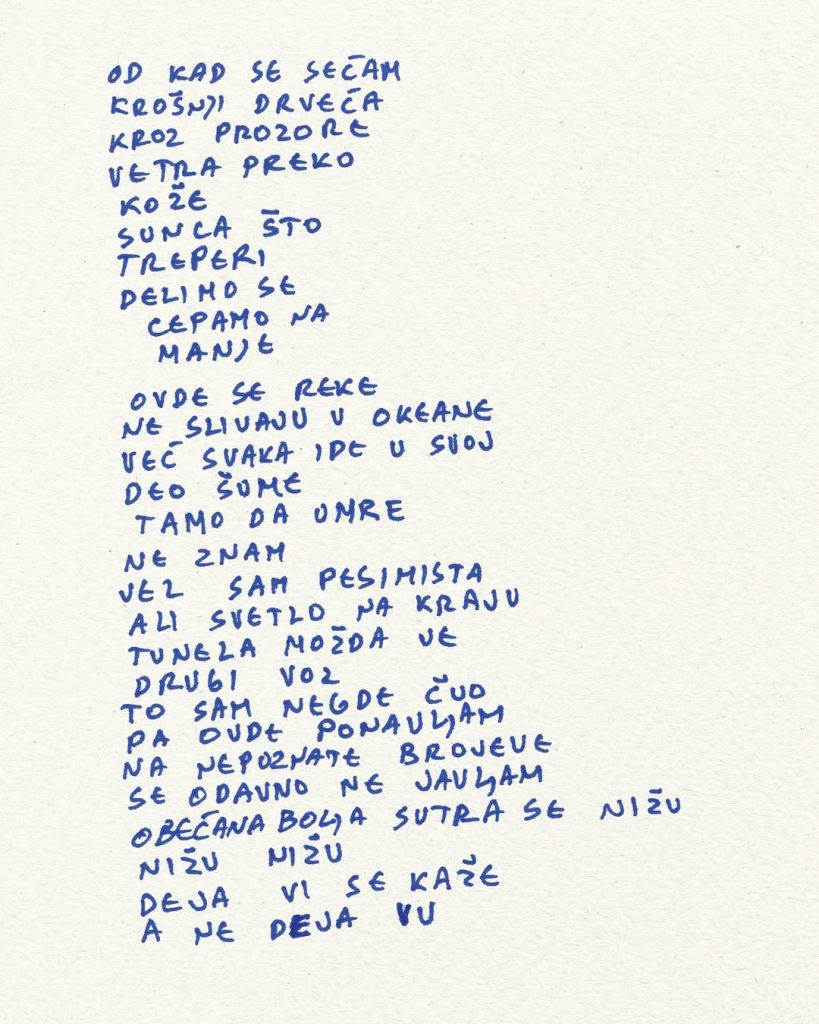 OD KAD SE SEĆAM
KROŠNJI DRVEĆA
KROZ PROZORE
VETRA PREKO
KOŽE
SUNCA ŠTO
TREPERI
DELIMO SE
CEPAMO NA
MANJE
OVDE SE REKE
NE SLIVAJU U OKEANE
VEĆ SVAKA IDE U SVOJ
DEO ŠUME
TAMO DA UMRE
NE ZNAM
JEL SAM PESIMISTA
ALI SVETLO NA KRAJU
TUNELA MOŽDA JE
DRUGI VOZ
TO SAM NEGDE ČUO
PA OVDE PONAVLJAM
NA NEPOZNATE BROJEVE
SE ODAVNO NE JAVLJAM
OBEĆANA BOLJA SUTRA SE NIŽU
NIŽU NIŽU
DEJA VI SE KAŽE
A NE DEJA VU